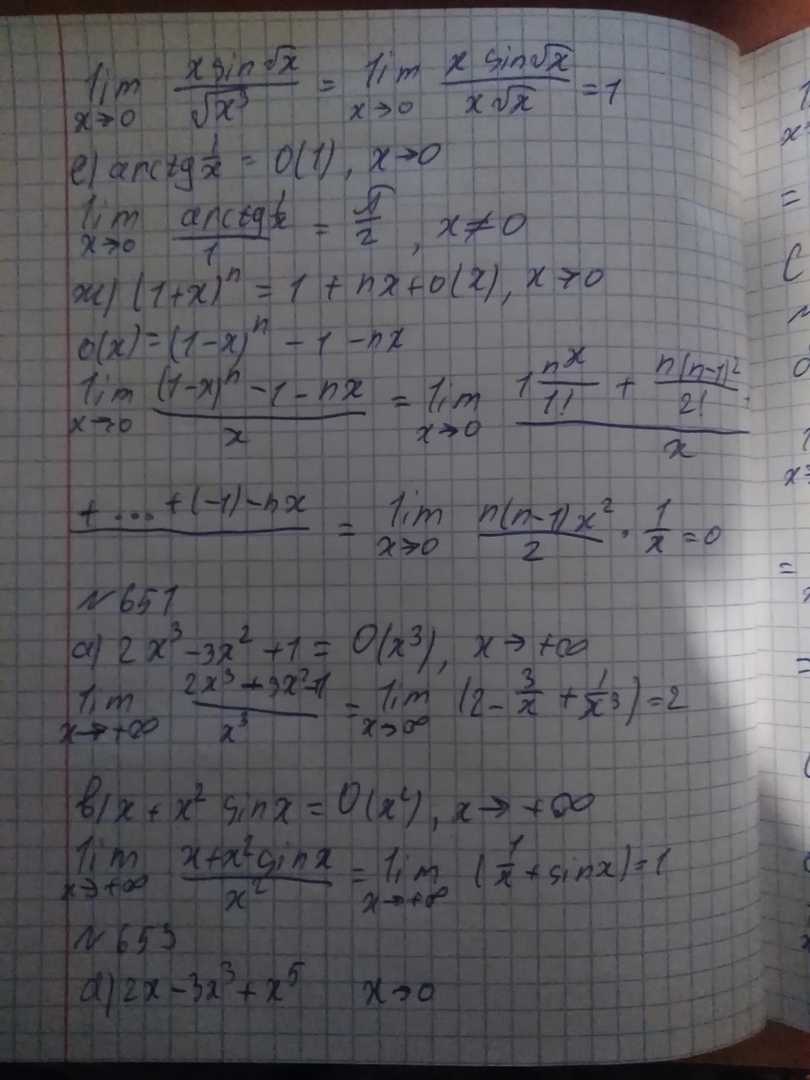 lim x→0 x sin √x / √x³ = lim x→0 x sin √x / x√x = 1
е) arctg 1/x = O(1), x→0
lim x→0 arctg 1/x / 1 = π/2, x≠0
ж) (1+x)ⁿ = 1 + nx + o(x), x→0
o(x) = (1-x)ⁿ - 1 - nx
lim x→0 (1-x)ⁿ - 1 - nx / x = lim x→0 1 nx/1! + n(n-1)²/2! · / x
+ ... + (-1) - nx = lim x→0 n(n-1)x² / 2 · 1/x = 0
№ 651
а) 2x³ - 3x² + 1 = O(x³), x→+∞
lim x→+∞ 2x³ + 3x² + 1 / x³ = lim x→∞ (2 - 3/x + 1/x³) = 2
в) x + x² sin x = O(x²), x→+∞
lim x→+∞ x + x² sin x / x² = lim x→+∞ (1/x + sin x) = 1
№ 653
а) 2x - 3x³ + x⁵ x→0